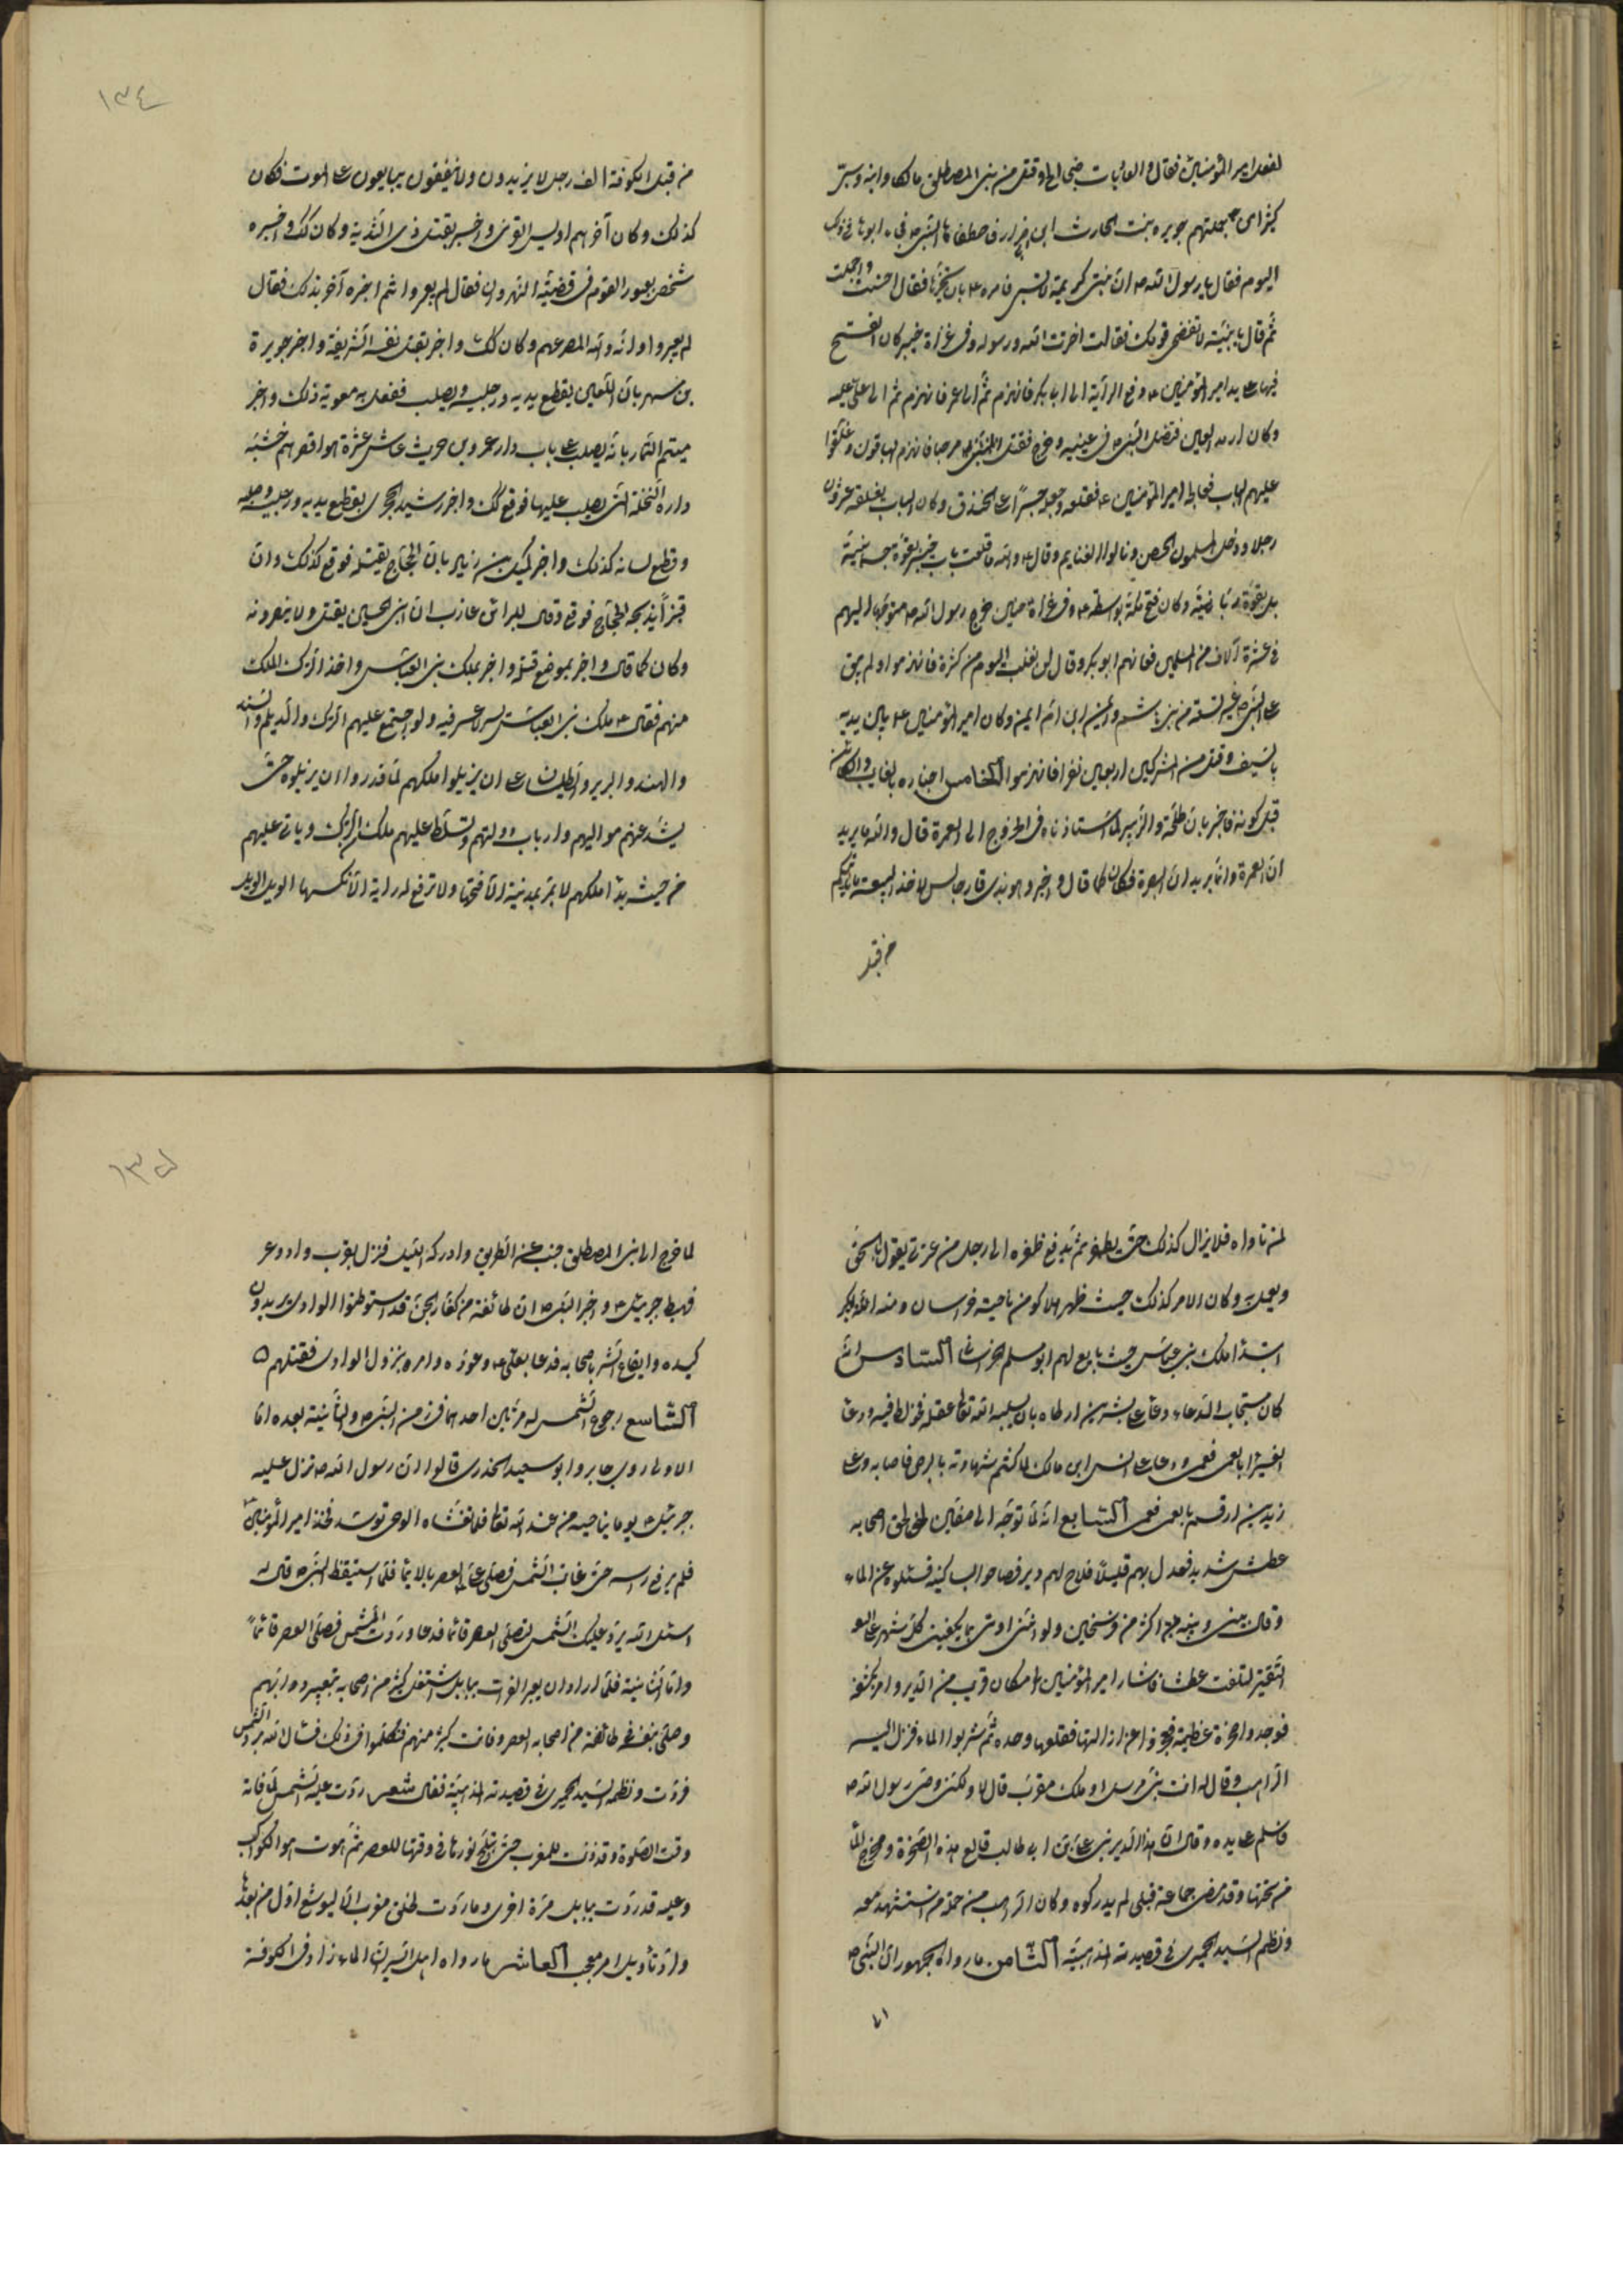 لفعل امير المؤمنين فقال والعاديات ضبحا الخ وقتل من بني المصطلق مالكا وابنه وسبى
كثيرا من جملتهم جويرة بنت الحارث ابن ضرار فاصطفاها النبي ص فجاء ابوها في ذلك
اليوم فقال يا رسول الله ص ان بنتي كريمة لا تسبى فامره ع بان يخيرها فقال احسنت واجملت
ثم قال يا بنية لا تفضحي قومك فقالت اخترت الله ورسوله وفي غزاة خيبر كان الفتح
فيها على يد امير المؤمنين ع دفع الراية الى ابا بكر فانهزم ثم الى عمر فانهزم ثم الى علي عليه
وكان ارمد العين فتفل النبي ص في عينيه وخرج فقتل مرحبا فانهزم الباقون وغلقوا
عليهم الباب فعالجه امير المؤمنين ع فقلعه وجعله جسرا على الخندق وكان الباب يغلقه عشرون
رجلا ودخل المسلمون الحصن ونالوا الغنايم وقال ع والله ما قلعت باب خيبر بقوة جسمانية
بل بقوة ربانية وكان فتح مكة بواسطته ع وفي غزاة حنين خرج رسول الله ص متوجها اليهم
في عشرة آلاف من المسلمين فعانهم ابو بكر وقال لن نغلب اليوم من كثرة فانهزموا ولم يبق
مع النبي ص غير تسعة من بني هاشم وايمن ابن ام ايمن وكان امير المؤمنين ع بين يديه
بالسيف وقتل من المشركين اربعين نفرا فانهزموا الخامس اخباره بالغايب والكائن
قبل كونه فاخبر بان طلحة والزبير لما استاذناه في الخروج الى العمرة قال والله ما يريد
ان العمرة وانما يريدان البصرة فكان كما قال واخبر وهو بذي قار جالس لاخذ البيعة ياتيكم
من قبل
من قبل الكوفة الف رجل لا يزيدون ولا ينقصون يبايعون على الموت فكان
كذلك وكان آخرهم اويس القرني واخبر بقتل ذي الثدية وكان كك واخبره
شخص بعبور القوم في قضية النهروان فقال لم يعبروا ثم اخبره آخر بذلك فقال
لم يعبروا وانه والله لمصرعهم وكان كك واخبر بقتل نفسه الشريفة واخبر جويرة
بن مسهر بان اللعين يقطع يديه ورجليه ويصلب ففعل به معوية ذلك واخبر
ميثم التمار بانه يصلب على باب دار عمرو بن حريث عاشر عشرة هو اقصرهم خشبة
واراه النخلة التي يصلب عليها فوقع كك واخبر رشيد الهجري بقطع يديه ورجليه وصلبه
وقطع لسانه كذلك واخبر كميل بن زياد بان الحجاج يقتله فوقع كذلك وان
قنبرا يذبحه الحجاج فوقع وقال للبراء بن عازب ان ابني الحسين يقتل ولا ينصرونه
وكان كما قال واخبر بموضع قتله واخبر بملك بني العباس واخذ الترك الملك
منهم فقال ع ملك بني العباس يسر لا عسر فيه ولو اجتمع عليهم الترك والديلم والسند
والهند والبربر والطيلسان على ان يزيلوا ملكهم لما قدروا ان يزيلوه حتى
يشذ عنهم مواليهم وارباب دولتهم وتسلط عليهم ملك من الترك وياتي عليهم
من حيث بدأ ملكهم لا يمر بمدينة الا فتحها ولا ترفع له راية الا نكسها الويل الويل
لمن ناواه فلا يزال كذلك حتى يظفر ثم يدفع ظفره الى رجل من عترتي يقول بالحق
ويعمل به وكان الامر كذلك حيث ظهر هلاكو من ناحية خراسان ومنه
ابتدأ ملك بني عباس حيث بايع لهم ابو مسلم الخراساني السادس انه
كان مستجاب الدعاء دعا على بشر بن ارطاه بان يسلبه الله تعالى عقله فخولط فيه ودعا
العيزار بالعمى فعمي ودعا على انس ابن مالك لما كتم شهادته بالبرص فاصابه ودعا على
زيد بن ارقم بالعمى فعمي السابع انه لما توجه الى صفين لحق اصحابه
عطش شديد فعدل بهم قليلا فلاح لهم دير فصاحوا بساكنه فسئلوه عن الماء
وقال بيني وبينه اكثر من فرسخين ولولا انني اوتى بما يكفيني كل شهر على
التقتير لتلفت عطشا فاشار امير المؤمنين الى مكان قريب من الدير وامر بكشفه
فوجدوا صخرة عظيمة فعجزوا عن ازالتها فقلعها وحده ثم شربوا الماء فنزل اليه
الراهب وقال له انت نبي مرسل او ملك مقرب قال لا ولكني وصي رسول الله ص
فاسلم على يده وقال ان هذا الدير بني على ابن ابي طالب قالع هذه الصخرة ومخرج الماء
من تحتها وقد مضى جماعة قبلي لم يدركوه وكان الراهب من جملة من استشهد معه
ونظم السيد الحميري في قصيدته المذهبية الثامن ما رواه الجمهور ان النبي ص
لما
لما خرج الى بني المصطلق جنب عن الطريق وادركه الليل فنزل بقرب واد وعر
فهبط جبرئيل ع واخبر النبي ص ان طائفة من كفار الجن قد استوطنوا الوادي يريدون
كيده وايقاع الشر باصحابه فدعا بعلي ع وعوذه وامره بنزول الوادي فقتلهم
التاسع رجوع الشمس له مرتين احدهما في زمن النبي ص والثانية بعده اما
الاولى روى جابر وابو سعيد الخدري قالوا ان رسول الله ص نزل عليه
جبرئيل ع يوما يناجيه من عند الله تعالى فلما تغشاه الوحي توسد فخذ امير المؤمنين
فلم يرفع رسه حتى غابت الشمس فصلى علي العصر بالايماء فلما استيقظ النبي ص قال له
اسئل الله يرد عليك الشمس لتصلي العصر قائما فدعا وردت الشمس فصلى العصر قائما
واما الثانية فلما اراد ان يعبر الفرات ببابل اشتغل كثير من اصحابه بتعبير دوابهم
وصلى بنفسه في طائفة من اصحابه العصر وفات كثير منهم فتكلموا في ذلك فسال الله برد الشمس
فردت ونظمه السيد الحميري في قصيدته المذهبية فقال شعر ردت عليه الشمس لما فاته
وقت الصلوة وقد دنت للمغرب حتى تبلج نورها في وقتها للعصر ثم هوت هوى الكوكب
وعليه قد ردت ببابل مرة اخرى وما ردت لخلق مغرب الا ليوشع او له من بعدها
ولردها تأويل امر معجب العاشر ما رواه اهل السير ان الماء زاد في الكوفة
١٣٤
١٣٥